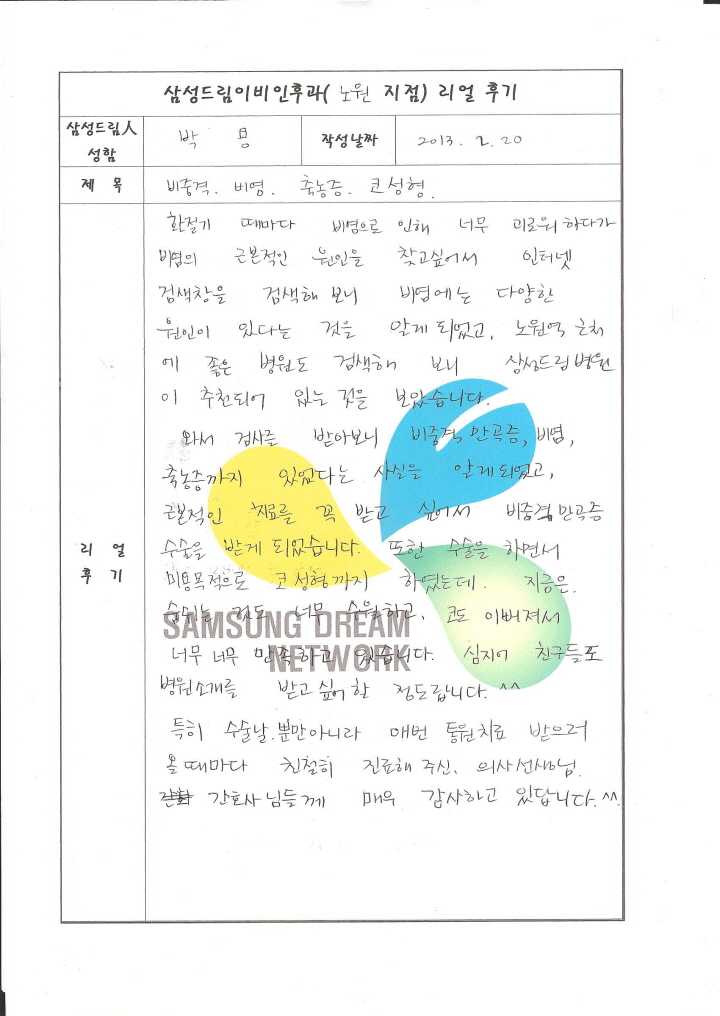 삼성드림이비인후과( 노원 지점) 리얼 후기
삼성드림人 성함
박
작성날짜
2013. 2. 20
제 목
비중격. 비염. 축농증. 코성형.
리 얼 후 기
환절기 때마다 비염으로 인해 너무 괴로워하다가
비염의 근본적인 원인을 찾고싶어서 인터넷
검색창을 검색해 보니 비염에는 다양한
원인이 있다는 것을 알게 되었고, 노원역 근처
에 좋은 병원도 검색해 보니 삼성드림병원
이 추천되어 있는 것을 보았습니다.
와서 검사를 받아보니 비중격 만곡증, 비염,
축농증까지 있었다는 사실을 알게 되었고,
근본적인 치료를 꼭 받고 싶어서 비중격 만곡증
수술을 받게 되었습니다. 또한 수술을 하면서
미용목적으로 코성형까지 하였는데. 지금은.
숨쉬는 것도 너무 수월하고, 코도 이뻐져서
너무 너무 만족하고 있습니다. 심지어 친구들도
병원소개를 받고 싶어 할 정도랍니다. ^^
특히 수술날.뿐만아니라 매번 통원치료 받으러
올 때마다 친절히 진료해 주신. 의사선생님.
간호사님들께 매우 감사하고 있답니다. ^^.
SAMSUNG DREAM
NETWORK